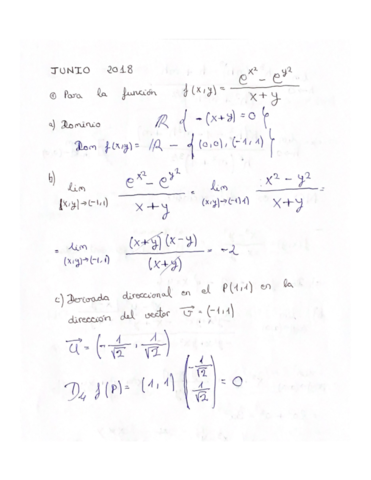 JUNIO 2018
① Para la función f(x,y) = (e^{x²} - e^{y²}) / (x+y)
a) Dominio ℝ { -(x+y) = 0 }
Dom f(x,y) = ℝ - { (0,0), (-1,1) }
b) lim_{(x,y)→(-1,1)} (e^{x²} - e^{y²}) / (x+y) = lim_{(x,y)→(-1,1)} (x² - y²) / (x+y) =
= lim_{(x,y)→(-1,1)} (x+y)(x-y) / (x+y) = -2
c) Derivada direccional en el P(1,1) en la
dirección del vector v⃗ = (-1,1)
u⃗ = (-1/√2, 1/√2)
D_u f(P) = (1,1) (-1/√2 1/√2) = 0